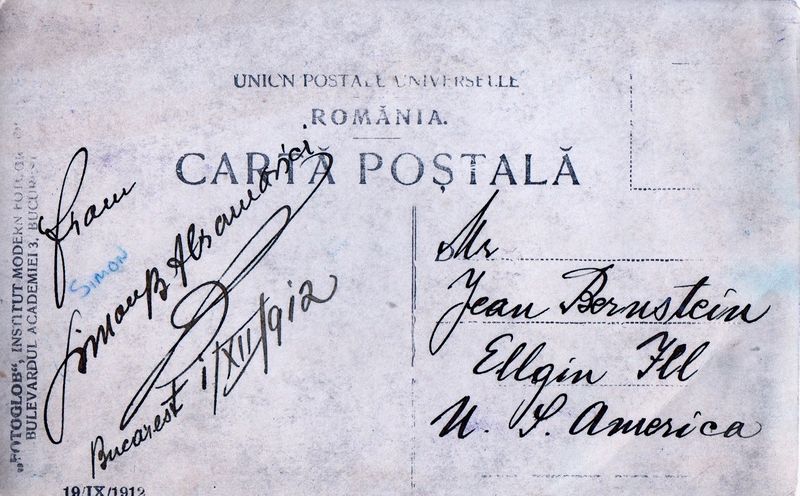 UNION POSTALE UNIVERSELLE
ROMÂNIA.
CARTĂ POȘTALĂ
From
Simon B Abramovici
SIMON
Bucarest 1/XII/912
Mr
Jean Bernstein
Ellgin Ill
U. S. America
„FOTOGLOB“, INSTITUT MODERN
BULEVARDUL ACADEMIEI 3, BUCUREST
19/IX/1912